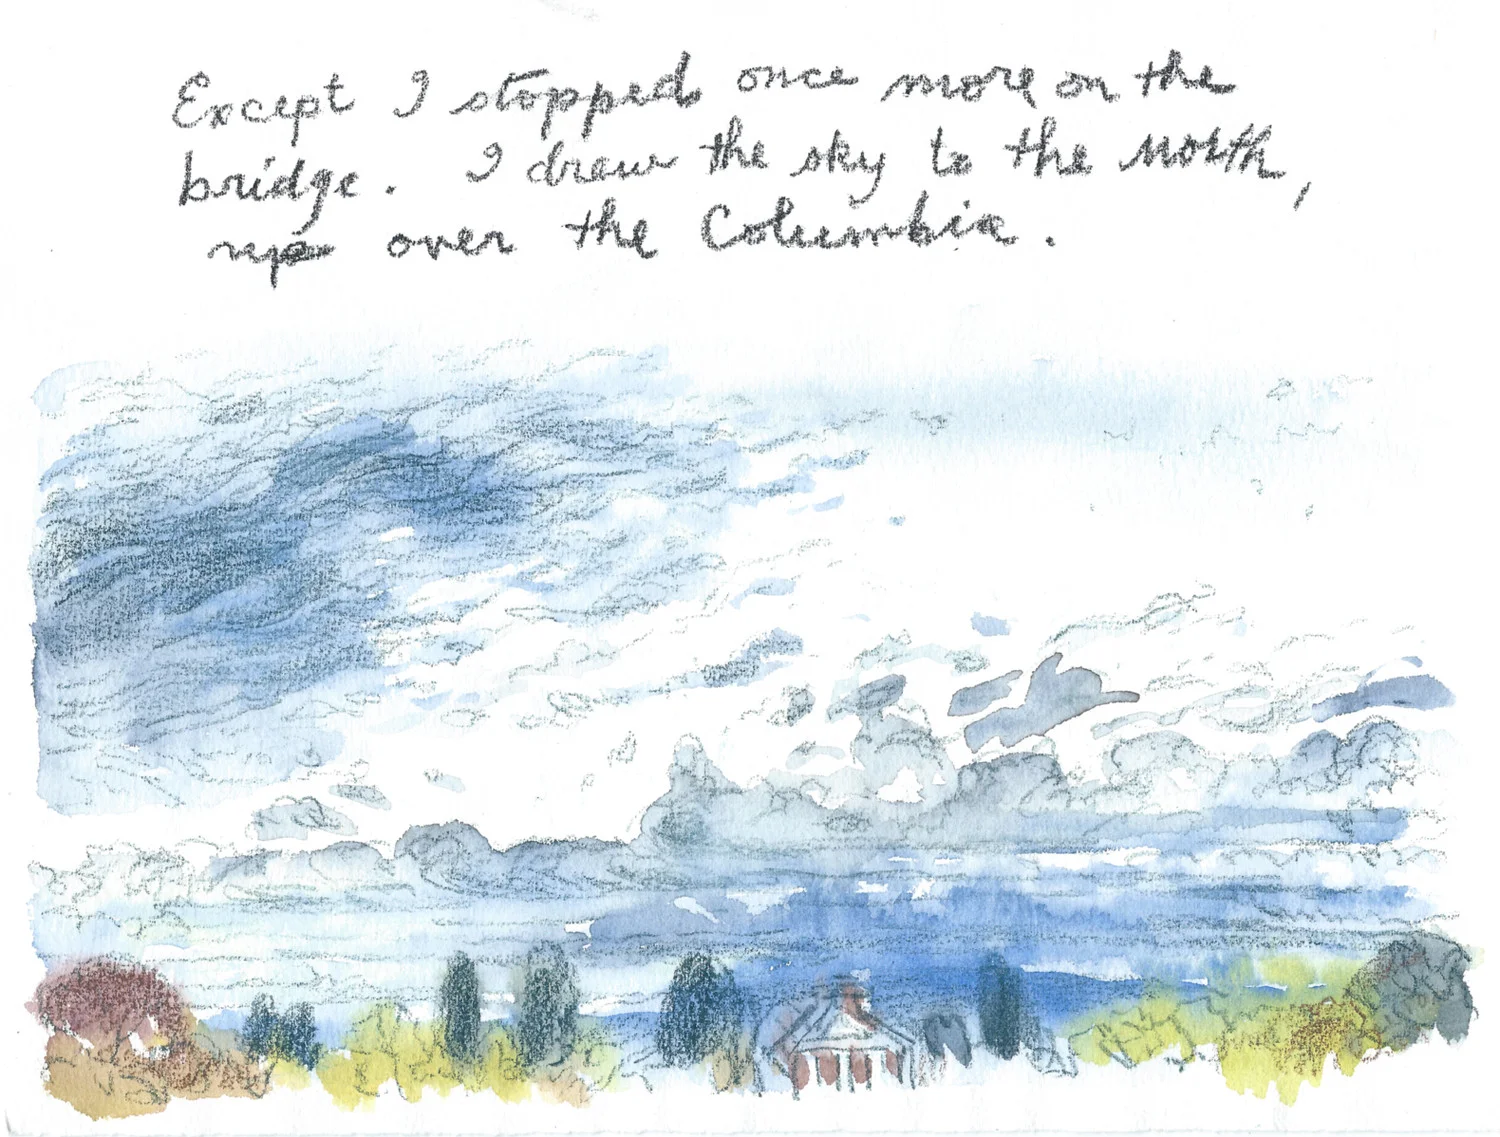 Except I stopped once more on the
bridge. I drew the sky to the north,
up over the Columbia.